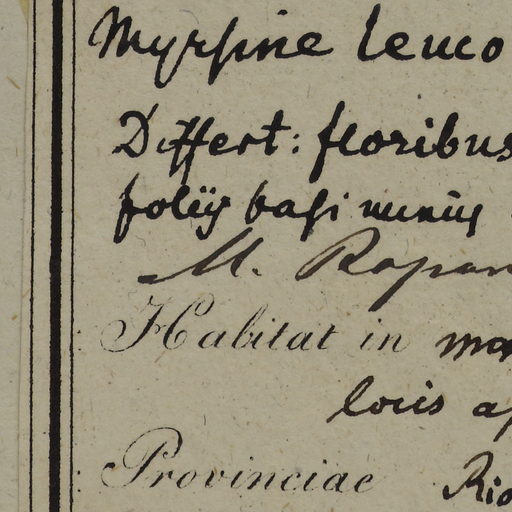 Myrsine leuco
Differt: floribus
foliis basi minus
M. Rapan
Habitat in mar
locis ap
Provinciae Rio